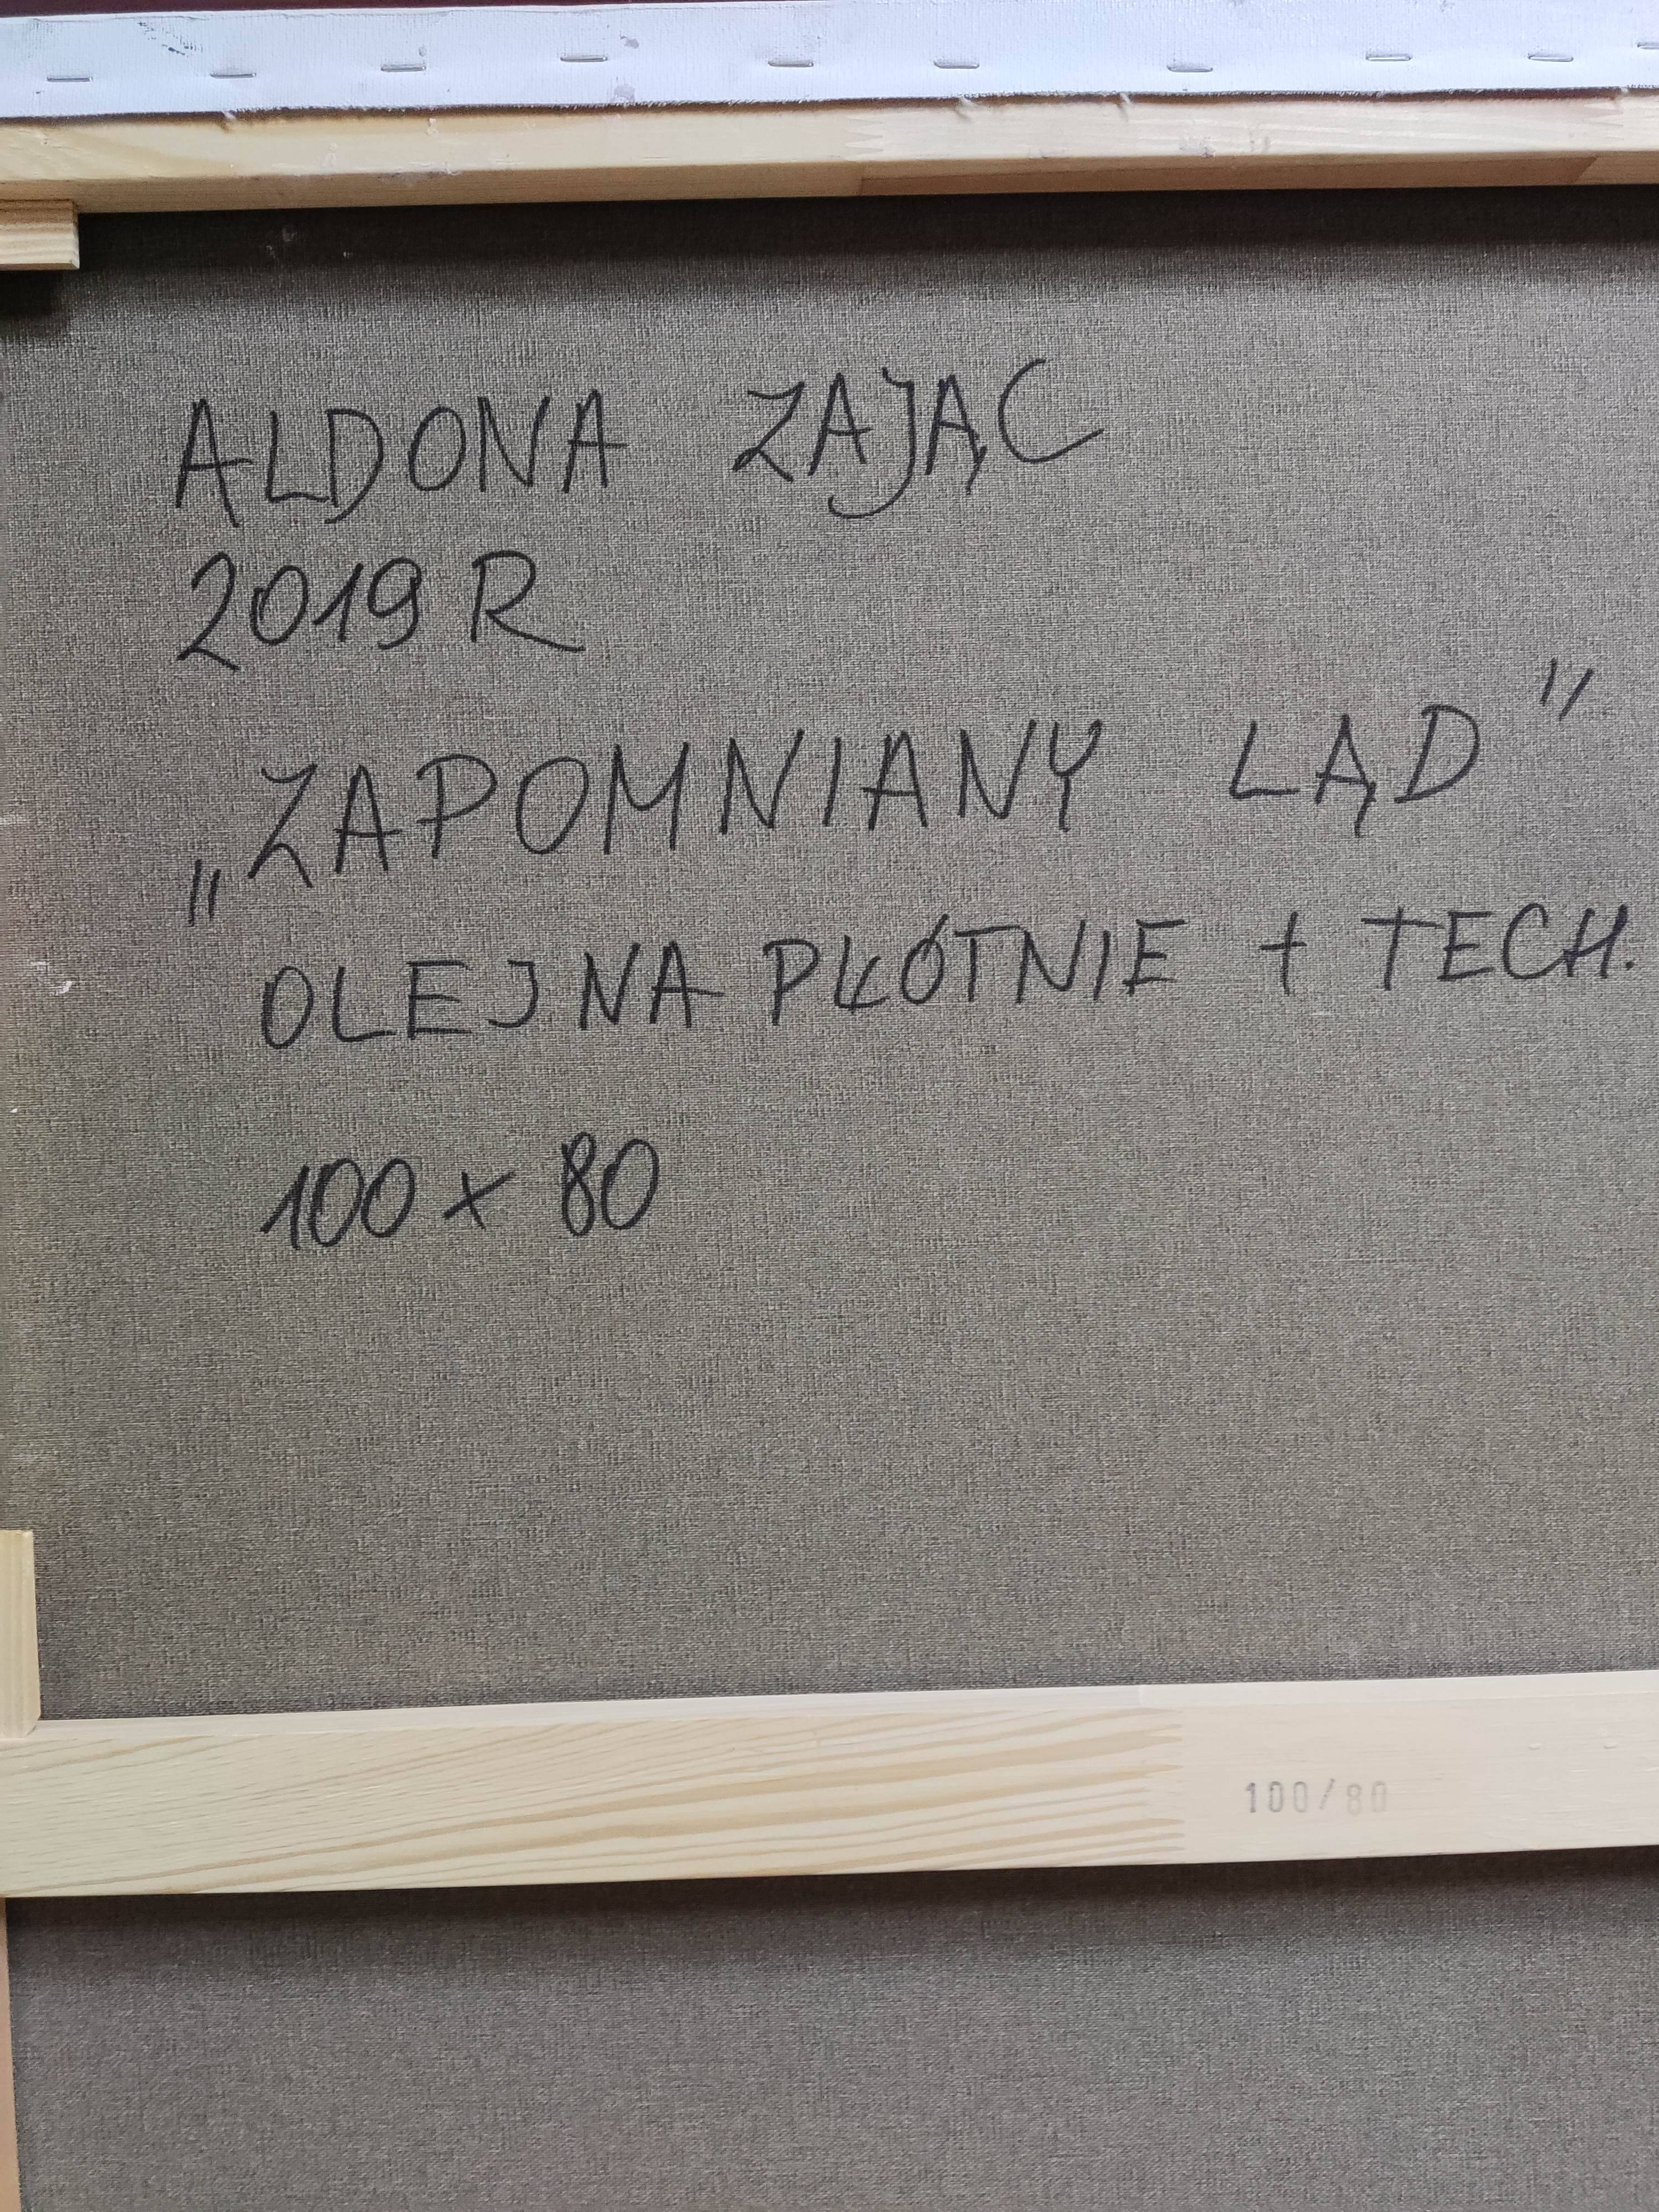 ALDONA ZAJĄC
2019 R
„ZAPOMNIANY LĄD”
OLEJ NA PŁÓTNIE + TECH.
100 x 80
100/80